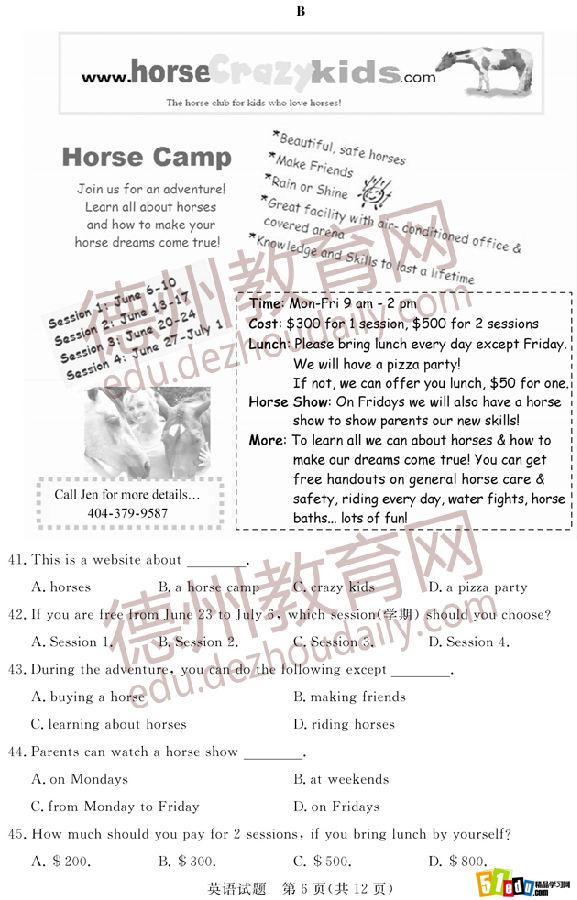 B
www.horseCrazykids.com
The horse club for kids who love horses!
Horse Camp
Join us for an adventure!
Learn all about horses
and how to make your
horse dreams come true!
*Beautiful, safe horses
*Make Friends
*Rain or Shine
*Great facility with air- conditioned office &
covered arena
*Knowledge and Skills to last a lifetime
Session 1: June 6-10
Session 2: June 13-17
Session 3: June 20-24
Session 4: June 27-July 1
Time: Mon-Fri 9 am - 2 pm
Cost: $300 for 1 session, $500 for 2 sessions
Lunch: Please bring lunch every day except Friday.
We will have a pizza party!
If not, we can offer you lunch, $50 for one.
Horse Show: On Fridays we will also have a horse
show to show parents our new skills!
More: To learn all we can about horses & how to
make our dreams come true! You can get
free handouts on general horse care &
safety, riding every day, water fights, horse
baths... lots of fun!
Call Jen for more details...
404-379-9587
41. This is a website about ______.
A. horses B. a horse camp C. crazy kids D. a pizza party
42. If you are free from June 23 to July 5, which session(学期) should you choose?
A. Session 1. B. Session 2. C. Session 3. D. Session 4.
43. During the adventure, you can do the following except ______.
A. buying a horse B. making friends
C. learning about horses D. riding horses
44. Parents can watch a horse show ______.
A. on Mondays B. at weekends
C. from Monday to Friday D. on Fridays
45. How much should you pay for 2 sessions, if you bring lunch by yourself?
A. $200. B. $300. C. $500. D. $800.
英语试题 第5页(共12页)
德州教育网
edu.dezhoudaily.com
德州教育网
edu.dezhoudaily.com
51edu精品学习网
.com